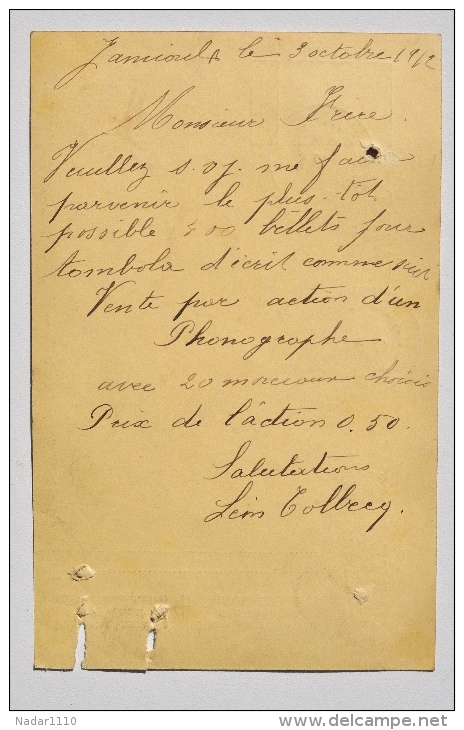 Jamioulx le 3 octobre 1912
Monsieur Frère.
Veuillez s. v. p. me faire
parvenir le plus-tôt
possible billets pour
tombola d'écrit comme suit
Vente par action d'un
Phonographe
avec 20 morceaux choisis
Prix de l'action 0.50.
Salutations
Léon
Nadar1110
delcampe.net